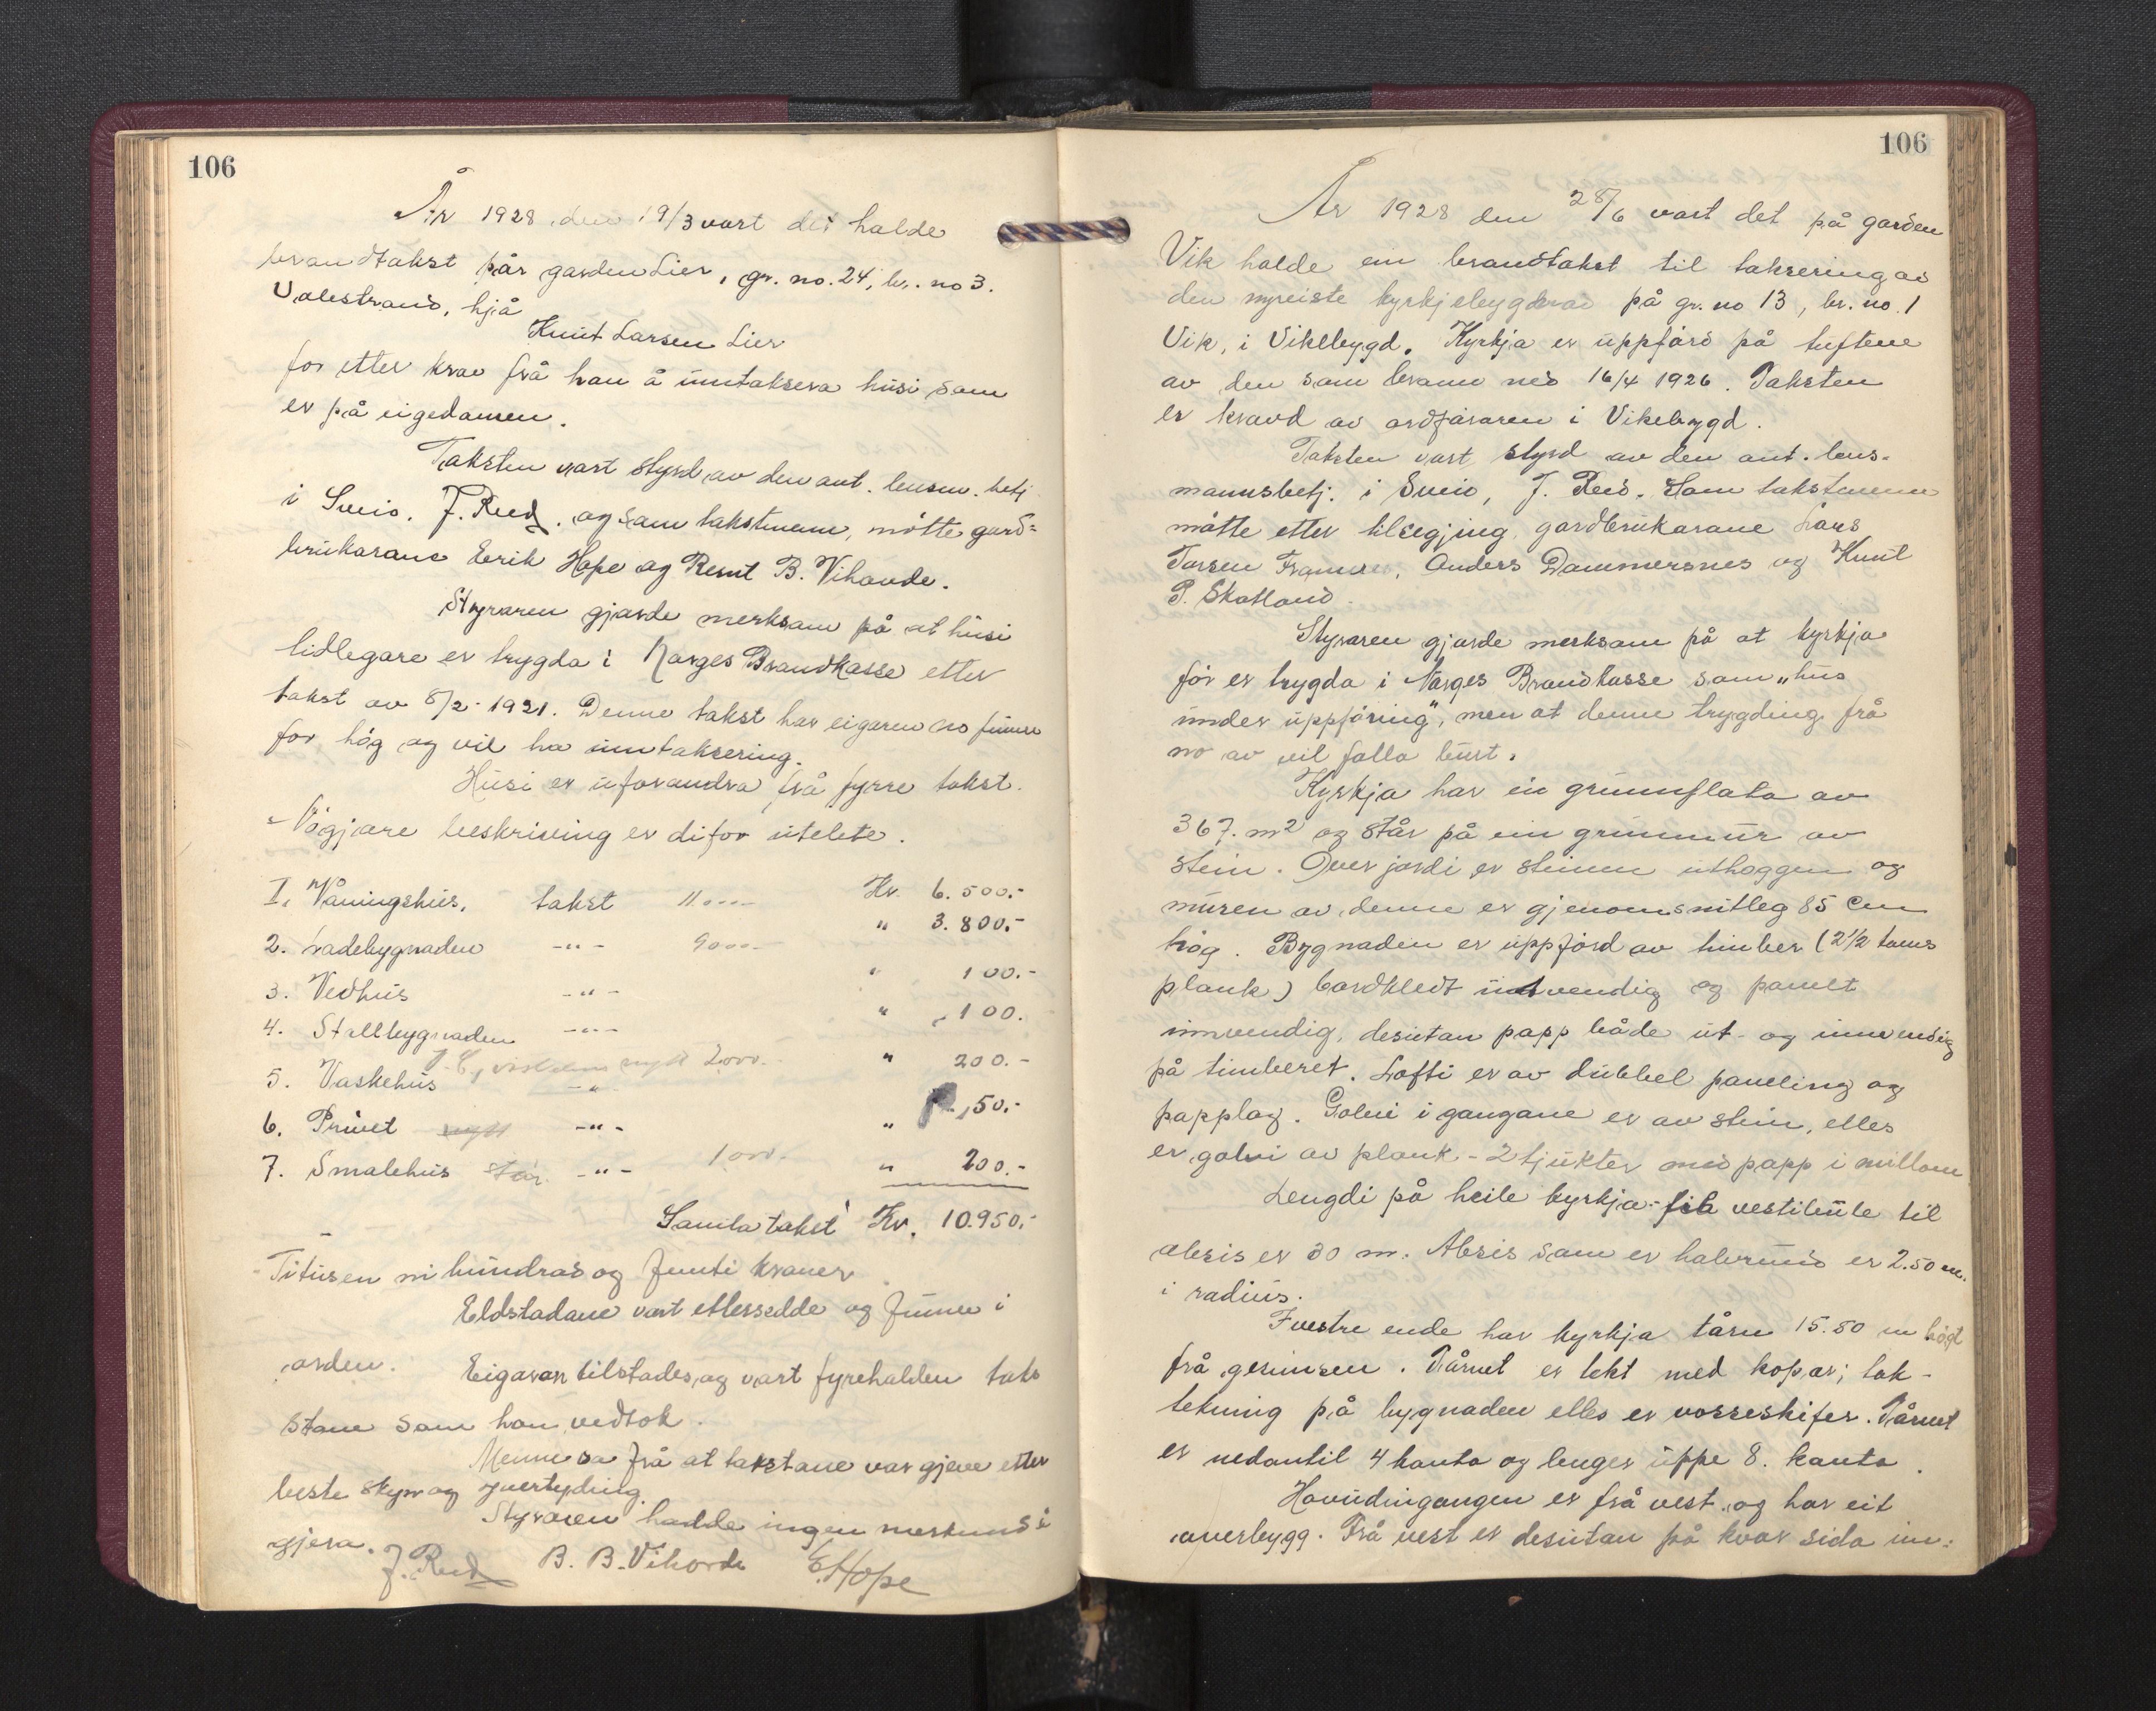 106
År 1928 den 19/3 vart det halde
brandtakst pår garden Lier, gr. no. 24, br. no 3.
Valestrand, hjå
Knut Larsen Lier
for etter krav frå han å umtaksera husi som
er på eigedomen.
Taksten vart styrd av den aut. lensm. betj
i Sveio. J. Reed. og som takstmenn, møtte gard=
brukarane Eerik Hope og Bernt B. Vihovde.
Styraren gjorde merksam på at husi
tidlegare er trygda i Norges Brandkasse etter
takst av 8/2-1921. Denne takst har eigaren no funne
for høg og vil ha umtaksering.
Husi er uforandra frå fyrre takst.
Nøgjare beskriving er difor utelete.
I. Våningshus, takst 11000 Kr. 6.500.-
2. Ladebygnaden -"- 9000- " 3.800.-
3. Vedhus -"- " 100.-
4. Stallbygnaden -"- " 100.
5. Vaskehus nytt 2000.- -"- " 200.-
6. Privet nytt -"- " 50.-
7. Smalehus står -"- 1000- " 200.-
Samla takst Kr. 10.950.-
Titusen ni hundrad og femti kroner
Eldstadane vart ettersedde og funne i
orden. Eigaren tilstades, og vart fyrehalden tak
stane som han vedtok.
Menne sa frå at takstane var gjeve etter
beste skyn og yvertyding.
Styraren hadde ingen merknad å
gjera.
J. Reed B. B. Vihovde E Hope
106
År 1928 den 28/6 vart det på garden
Vik halde ein brandtakst til taksering av
den nyreiste kyrkjebygdnad på gr. no 13, br. no. 1
Vik, i Vikebygd. Kyrkja er uppførd på tuftene
av den som brann ned 16/4 1926. Taksten
er kravd av ordføraren i Vikebygd.
Taksten vart styrd av den aut. lens-
mannsbetj. i Sveio, J. Reed. Som takstmenn
møtte etter tilsegjing, gardbrukarane Lars
Tossen, Anders Dommersnes og Knut
P. Skotland.
Styraren gjorde merksam på at kyrkja
før er trygda i Norges Brandkasse som "hus
under uppføring", men at denne trygding frå
no av vil falla burt.
Kyrkja har ein grunnflata av
367. m2 og står på ein grunnmur av
stein. Over jordi er steinen uthoggen og
muren av denne er gjenomsnitleg 85 cm
høg. Bygnaden er uppførd av timber (2 1/2 toms
plank) bordkledt utvendig og panelt
innvendig, desutan papp både ut- og innvendig
på timberet. Lofti er av dubbel paneling og
papplag. Golvi i gangane er av stein, elles
er golvi av plank - 2 tjukter med papp i millom
Lengdi på heile kyrkja frå vestibule til
absis er 30 m. Absis som er halvrund er 2.50 m.
i radius.
I vestre ende har kyrkja tårn 15.50 m høgt
frå gesimsen. Tårnet er tekt med kopar; tak-
tekning på bygnaden elles er vosseskifer. Tårnet
er nedantil 4 kanta og lenger uppe 8. kanta.
Hovudingangen er frå vest og har eit
overbygg. Frå vest er desutan på kvar sida in-